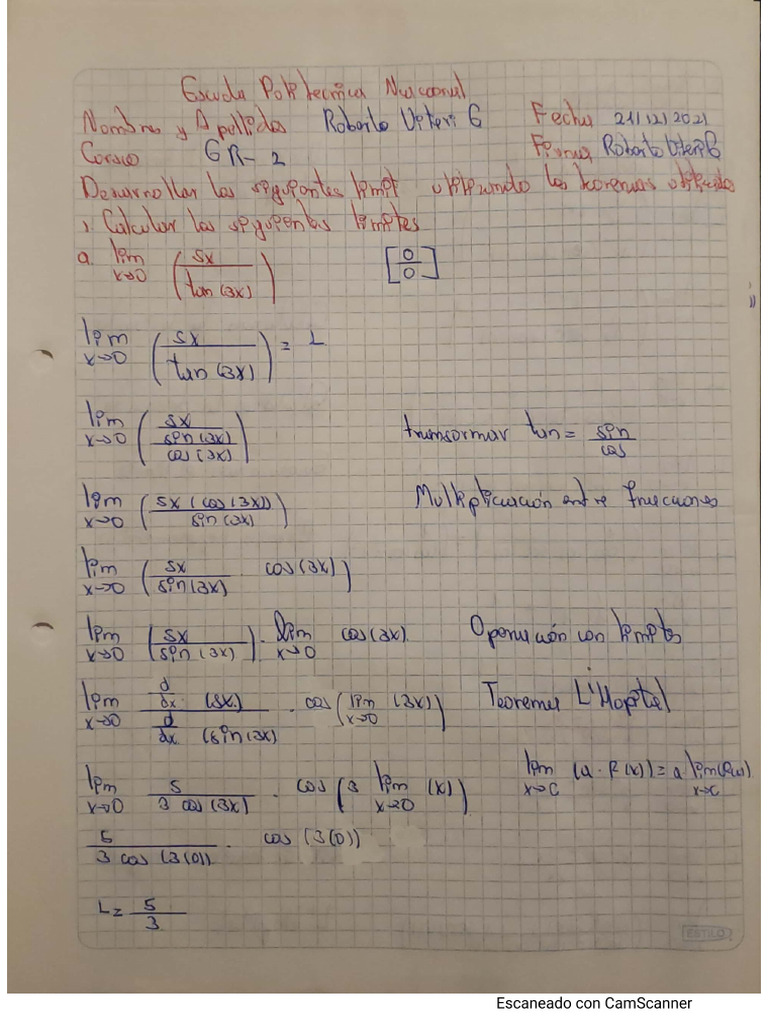 Escuela Politecnica Nacional
Nombres y Apellidos Roberto Viteri G Fecha 21/12/2021
Curso GR-2 Firma Roberto Viteri G
Desarrollar los siguientes limit utilizando los teoremas
1 Calcular los siguientes limites
a. lim x→0 (5x / tan(3x)) [0/0]
lim x→0 (5x / tan(3x)) = L
lim x→0 (5x / (sin(3x) / cos(3x))) transformar tan = sin / cos
lim x→0 (5x (cos(3x)) / sin(3x)) Multiplicación entre fracciones
lim x→0 (5x / sin(3x) cos(3x))
lim x→0 (5x / sin(3x)) · lim x→0 cos(3x). Operación con limites
lim x→0 d/dx (5x) / d/dx (sin(3x) · cos(lim x→0 (3x)) Teorema L'Hopital
lim x→0 5 / 3 cos(3x) · cos(3 lim x→0 (x)) lim x→c (a · f(x)) = a lim x→c (f(x))
5 / 3 cos(3(0)) · cos(3(0))
L = 5 / 3
ESTILO
Escaneado con CamScanner